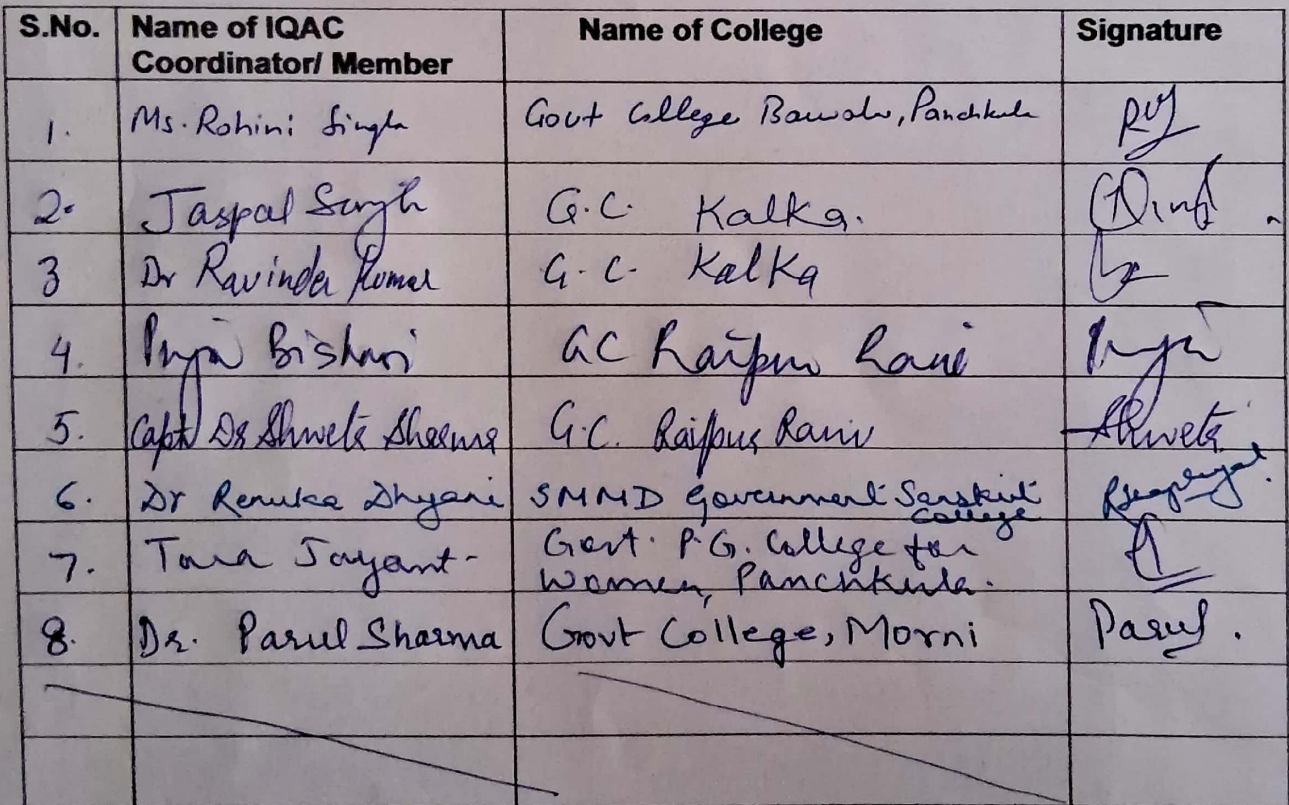 S.No. Name of IQAC Coordinator/ Member Name of College Signature
1. Ms. Rohini Singh Govt College Barwala, Panchkula
2. Jaspal Singh G.C. Kalka.
3 Dr Ravinder Kumar G.C. Kalka
4. Puja Bishnoi GC Raipur Rani Puja
5. Capt Dr Shweta Sharma G.C. Raipur Rani Shweta
6. Dr Renuka Dhyani SMMD Government Sanskrit College
7. Tara Jayant Govt. P.G. College for Women, Panchkula.
8. Dr. Parul Sharma Govt College, Morni Parul.